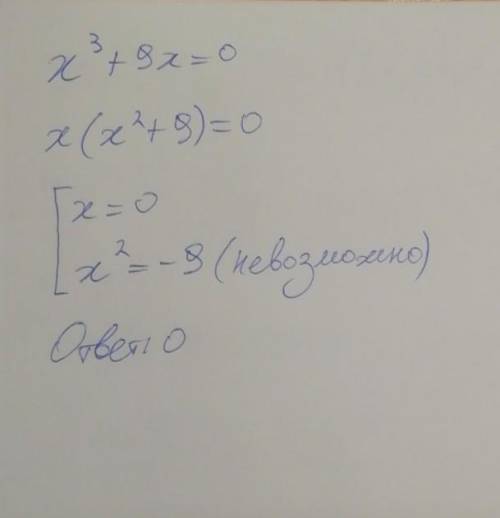 x³+9x=0
x(x²+9)=0
[x=0
x²=-9 (невозможно)
Ответ: 0